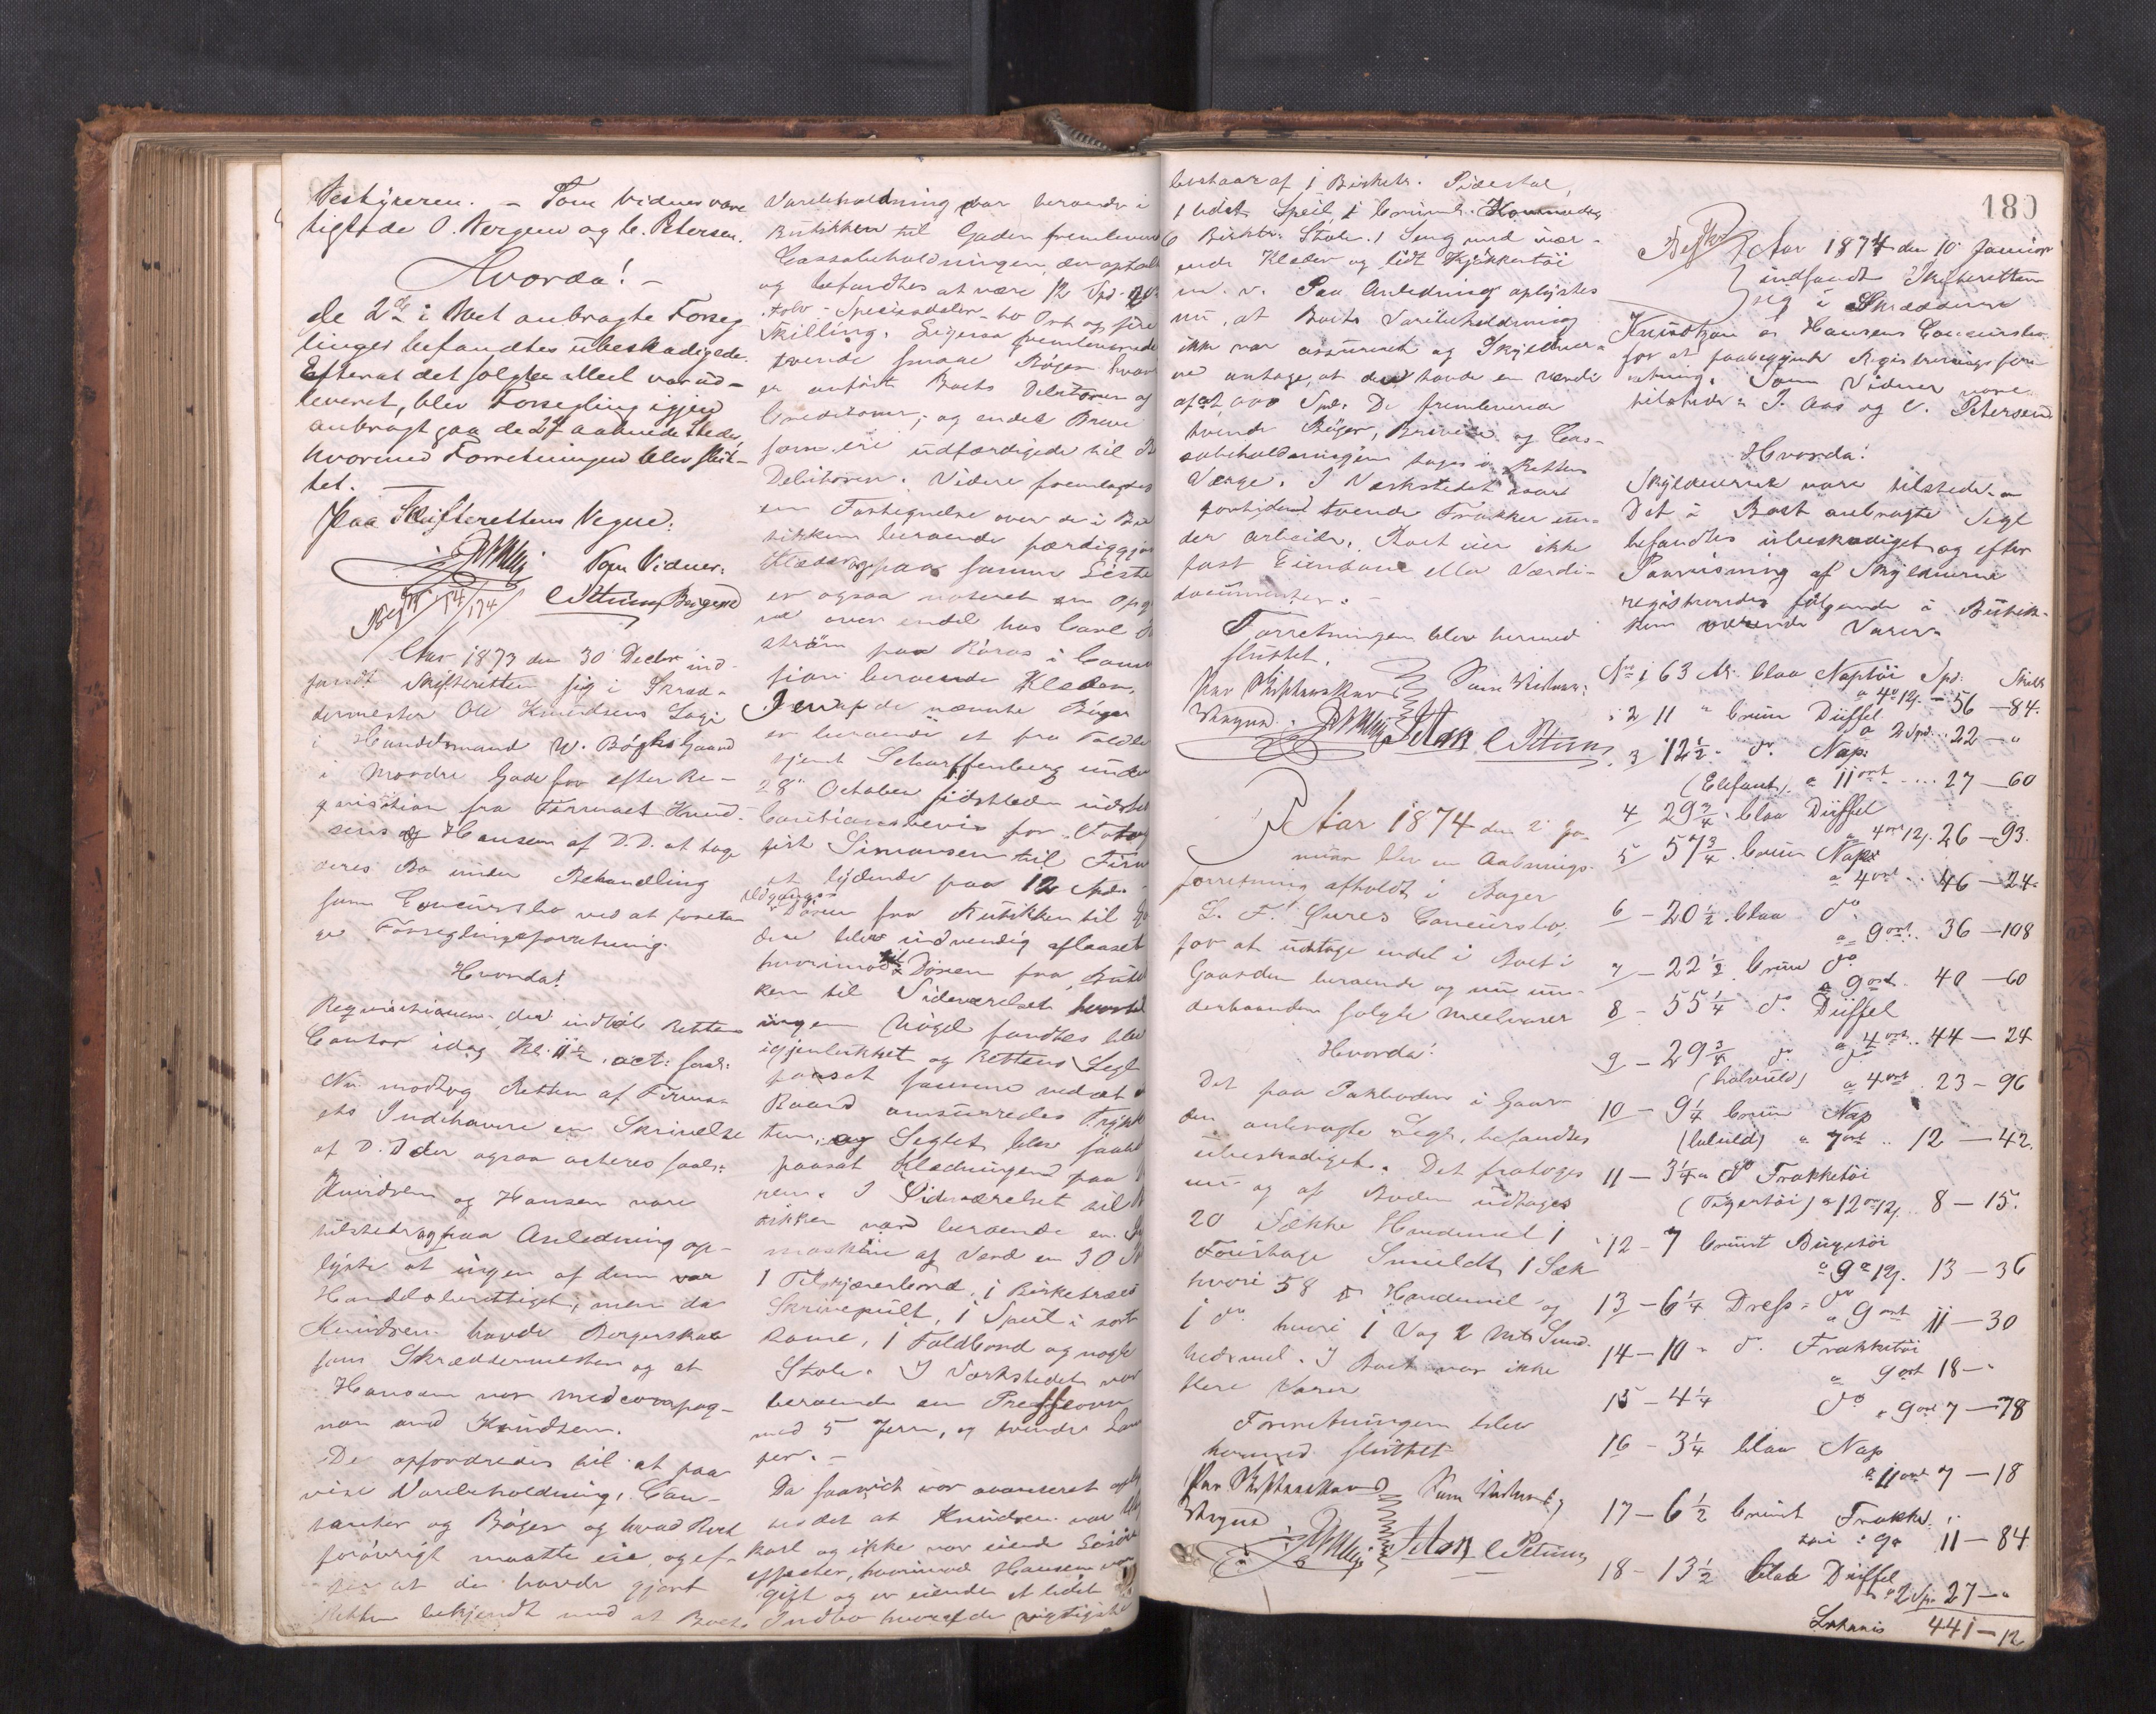 Bestyreren. – Som Vidner vare
tilstede O. Bergene og C. Petersen.
Hvorda! –
de 2de i Boet anbragte Forseg-
linger befandtes ubeskadigede.
Efterat det solgte Meel var ud-
leveret, blev Forsegling igjen
anbragt paa de 2de aabnede Steder,
hvormed Forretningen blev slut-
tet.
Paa Skifterettens Vegne:
Som Vidner:
C Petersen Bergene
Aar 1873 den 30 Decbr ind-
fandt Skifteretten sig i Skræd-
dermester Ole Knudsens Logi
i Handelsmand W. Bøghs Gaard
i Nordre Gade for efter Re-
qvisition fra Firmaet Knud-
sens og Hansen af D.D. at tage
deres Bo under Behandling
som Concursbo ved at foreta-
ge Forseglingsforretning.
Hvorda!
Requisitionen, der indløb Rettens
Contor idag Kl. 11½, act: saal:
Nu modtog Retten af Firma-
ets Indehavere en Skrivelse
af D.D der ogsaa acteres saal:
Knudsen og Hansen vare
tilstede og paa Anledning op-
lyste at ingen af dem var
Handelsberettiget, men da
Knudsen havde Borgerskab
som Skræddermester og at
Hansen var medcompag-
non med Knudsen.
De opfordredes til at paa-
vise Varebeholdning, Con-
tanter og Bøger og hvad Boet
forøvrigt maatte eie, og ef-
ter at de havde gjort
Retten bekjendt med at Boets
Varebeholdning var beroende i
Butikken til Gaden fremleverede
Cassabeholdningen, der optaltes
og befandtes at være 12 Spd.
tolv Speciedaler to Ort og fire
Skilling. Ligesaa fremleveredes
tvende smaae Bøger hvori
er anført Boets Debitorer og
Creditorer; og endel Breve
som ere udfærdigede til
Debitorer. Videre fremlagdes
en Fortegnelse over de i Bu-
tikken beroende færdiggjorte
Klæder og paa samme Liste
er ogsaa noteret en Opga-
ve over endel hos Carl
strøm paa Røros i Commis-
sion beroende Klæder.
I en af de nævnte Bøger
er beroende et fra Toldbe-
tjent Scharffenberg under
28de October sidstleden udstedt
Cautionsbevis for Fotog-
raf Simonsen til Firma-
et lydende paa 12 Spd. –
Udgangs-
Døren fra Butikken til Ga-
den blev indvendig aflaaset
hvorimod til Døren fra Butik-
ken til Sideværelset hvortil
ingen Nøgel fandtes blev
igjenlukket og Rettens Segl
paasat samme ved at et
Baand omsurredes Trykk-
ken, og Seglet blev saaledes
paasat Klædningen paa Dø-
ren. I Sideværelset til Bu-
tikken var beroende en Sy-
maskine af Værd en 30 Spd
1 Tilskjærerbord, 1 Birketræes
Skrivepult, 1 Speil i sort
Rame, 1 Foldbord og nogle
Stole. I Værkstedet var
beroende en Presseovn
med 5 Jern, og tvende Lam-
per. –
Da saavidt var avanceret op-
lystes det at Knudsen var Ung-
karl og ikke var eiende Løsøre-
effecter, hvorimod Hansen var
gift og er eiende et lidet
Indbo hvoraf de vigtigste
bestaar af 1 Birketr. Pidestal,
1 lidet Speil, 1 brunm. Kommode,
6 Birktr. Stole, 1 Seng med vær-
ende Klæder og lidt Kjøkkentøi
m. v. Paa Anledning oplystes
nu, at Boets Varebeholdning
ikke var assureret og Skyldner-
ne antage, at den havde en Værdi
af 000 Spd. De fremleverede
tvende Bøger, Brevene og Cas-
sabeholdningen toges i Rettens
Værge. I Værkstedet vare
fortiden tvende Frakker un-
der arbeide. Boet eier ikke
fast Eiendom eller Værdi-
documenter. –
Forretningen blev hermed
sluttet.
Paa Skifterettens Som Vidner:
Vegne. C Petersen
Aar 1874 den 2de Ja-
nuar blev en Aabnings-
forretning afholdt i Bager
L. F. Øures Concursbo,
for at udtage endel i Boet i
Gaarden beroende og nu un-
derhaanden solgte Meelvarer
Hvorda!
Det paa Pakboden i Gaar-
den anbragte Segl, befandtes
ubeskadiget. Det fratoges
nu og af Boden udtoges
20 Sække Havremel 1
Foustage Smuldt, 1 Sæk
hvori 58 ℔ Havremel og
1 do hvori 1 Vog 2 Mk Sund-
hedsmel. I Boet var ikke
flere Varer
Forretningen blev
hermed sluttet
Paa Skifterettens Som Vidner:
Vegne C Petersen
180
Aar 1874 den 10de Januar
indfandt Skifteretten
sig i Skrædderne
Knudsen & Hansens Concursbo
for at paabegynde Registreringsfor-
retning. Som Vidner vare
tilstede: J. Aas og C. Petersen
Hvorda!
Skyldnerne vare tilstede. –
Det i Boet anbragte Segl
befandtes ubeskadiget og efter
Paavisning af Skyldnerne
registreredes følgende i Butik-
ken værende Varer.
No 1 63 Al. blaa Naptøi Spd. Skill
a 4o 12s. – 56 – 84.
2 11 " brun Düffel
a 2 Spd. 22 – "
3 12½ - do Nap:
(Elefant) a 11ort ... 27 – 60
4 29¾ - blaa Düffel
a 4ort 12s. 26 – 93.
5 57¾ - brun Nap:
a 4ort .. 46 – 24
6 – 20½ - blaa do
a 9ort .. 36 – 108
7 – 22½ brun do
a 9ort. 40 – 60
8 – 55¼ do Düffel
a 4ort .. 44 – 24
9 – 29¾ do do
(halvuld) a 4ort . 23 – 96
10 – 9¼ brun Nap
(heluld) a 7ort .. 12 – 42.
11 – 3¼ " do Frakketøi
(Tigertøi) a 12ort 12s. 8 – 15.
12 – 7 brunt Buxetøi
a 9o 12s. 13 – 36
13 – 6¼ Dress = do
a 9ort 11 – 30
14 – 10 " do Frakketøi
a 9ort 18 – "
15 – 4¼ do
a 9ort 7 – 78
16 – 3¼ blaa Nap
a 11ort 7 – 18
17 – 6½ brunt Frakke-
tøi a 9o 11 – 84
18 – 13½ blaa Düffel
a 2 Sp. 27 – "
Lateris 441 – 12